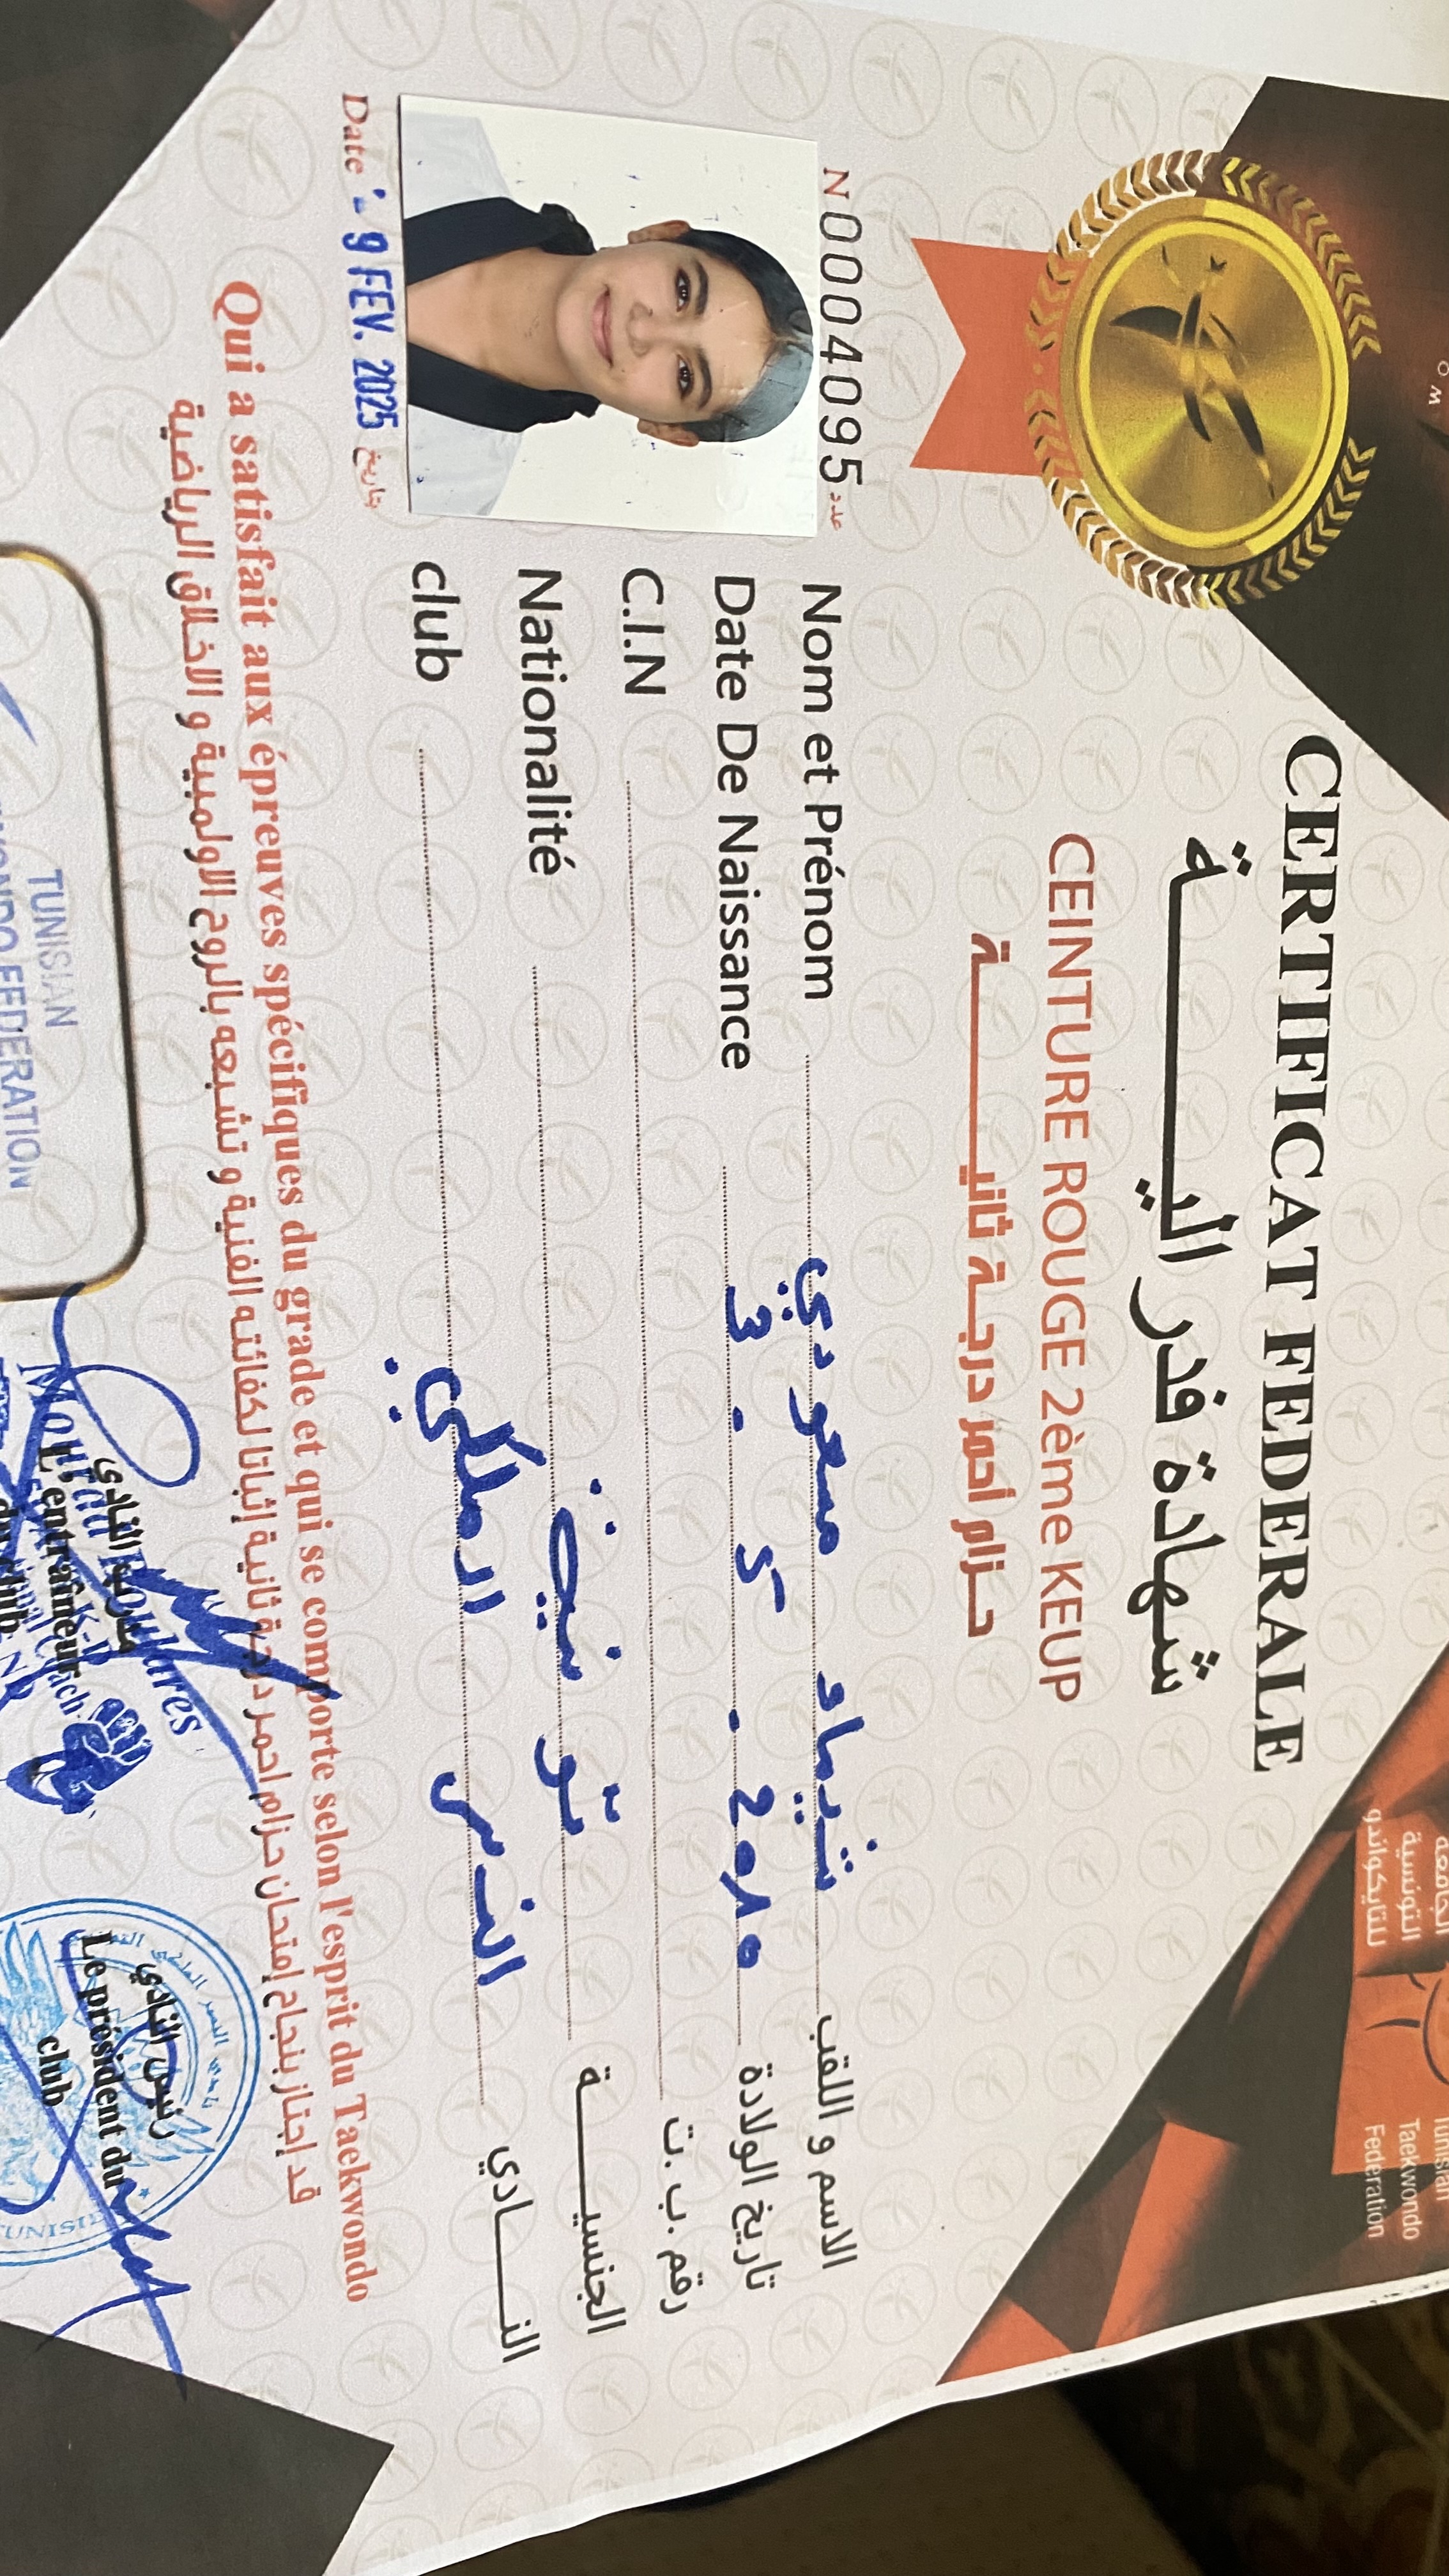 الجامعة
التونسية
للتايكواندو
Tunisian
Taekwondo
Federation
CERTIFICAT FEDERALE
شهادة فدرالية
CEINTURE ROUGE 2ème KEUP
حزام أحمر درجة ثانية
N 0004095 عدد
Nom et Prénom شيماء مسعودي الاسم و اللقب
Date De Naissance 3. 5. 2010 تاريخ الولادة
C.I.N رقم .ب .ت
Nationalité تونسية الجنسية
club النسر الملكي النادي
Date : - 9 FEV. 2025 بتاريخ
Qui a satisfait aux épreuves spécifiques du grade et qui se comporte selon l'esprit du Taekwondo
قد إجتاز بنجاح إمتحان حزام احمر درجة ثانية إثباتا لكفائته الفنية و تشبعه بالروح الاولمبية و الاخلاق الرياضية
TUNISIAN
FEDERATION
مدرب النادي
L'entraîneur
du club
رئيس النادي
Le président du
club